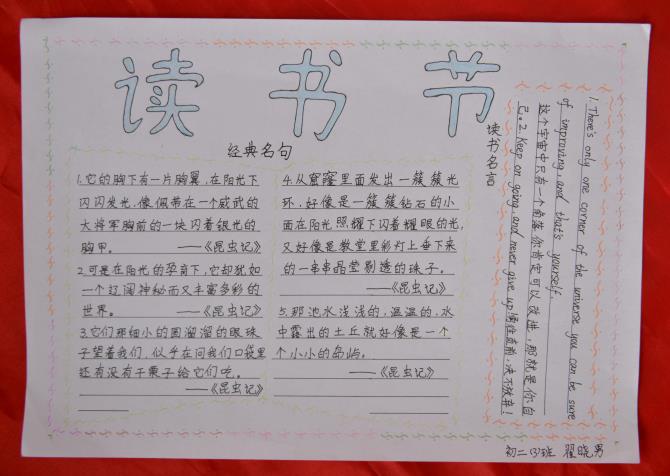 读书节
经典名句
1.它的胸下有一片胸翼,在阳光下
闪闪发光,像佩带在一个威武的
大将军胸前的一块闪着银光的
胸甲。 ——《昆虫记》
2.可是在阳光的孕育下,它却犹如
一个辽阔神秘而又丰富多彩的
世界。 ——《昆虫记》
3.它们那细小的圆溜溜的眼珠
子望着我们,似乎在问我们口袋里
还有没有干栗子给它们吃。
——《昆虫记》
4.从窟窿里面发出一簇簇光
环,好像是一簇簇钻石的小
面在阳光照耀下闪着耀眼的光,
又好像是教堂里彩灯上垂下来
的一串串晶莹剔透的珠子。
——《昆虫记》
5.那池水浅浅的,温温的,水
中露出的土丘就好像是一个
个小小的岛屿。
——《昆虫记》
读书名言
1.There's only one corner of the universe you can be sure
of improving, and that's yourself.
这个宇宙中只有一个角落你肯定可以改进,那就是你自
己。2.Keep on going, and never give up!勇往直前,决不放弃!
初二(3)班 翟晓男